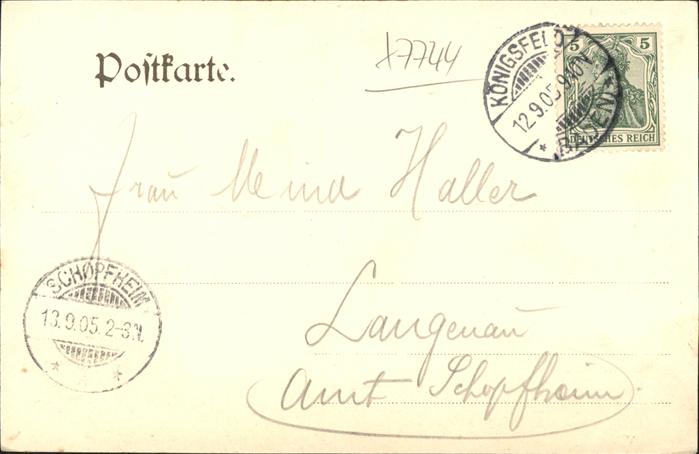 Postkarte.
x7744
KÖNIGSFELD
12.9.05.9-10V.
* (BADEN) *
5 5
DEUTSCHES REICH
Frau Meina Haller
SCHOPFHEIM
13.9.05.2-3N.
* * *
Langenau
Amt Schopfheim